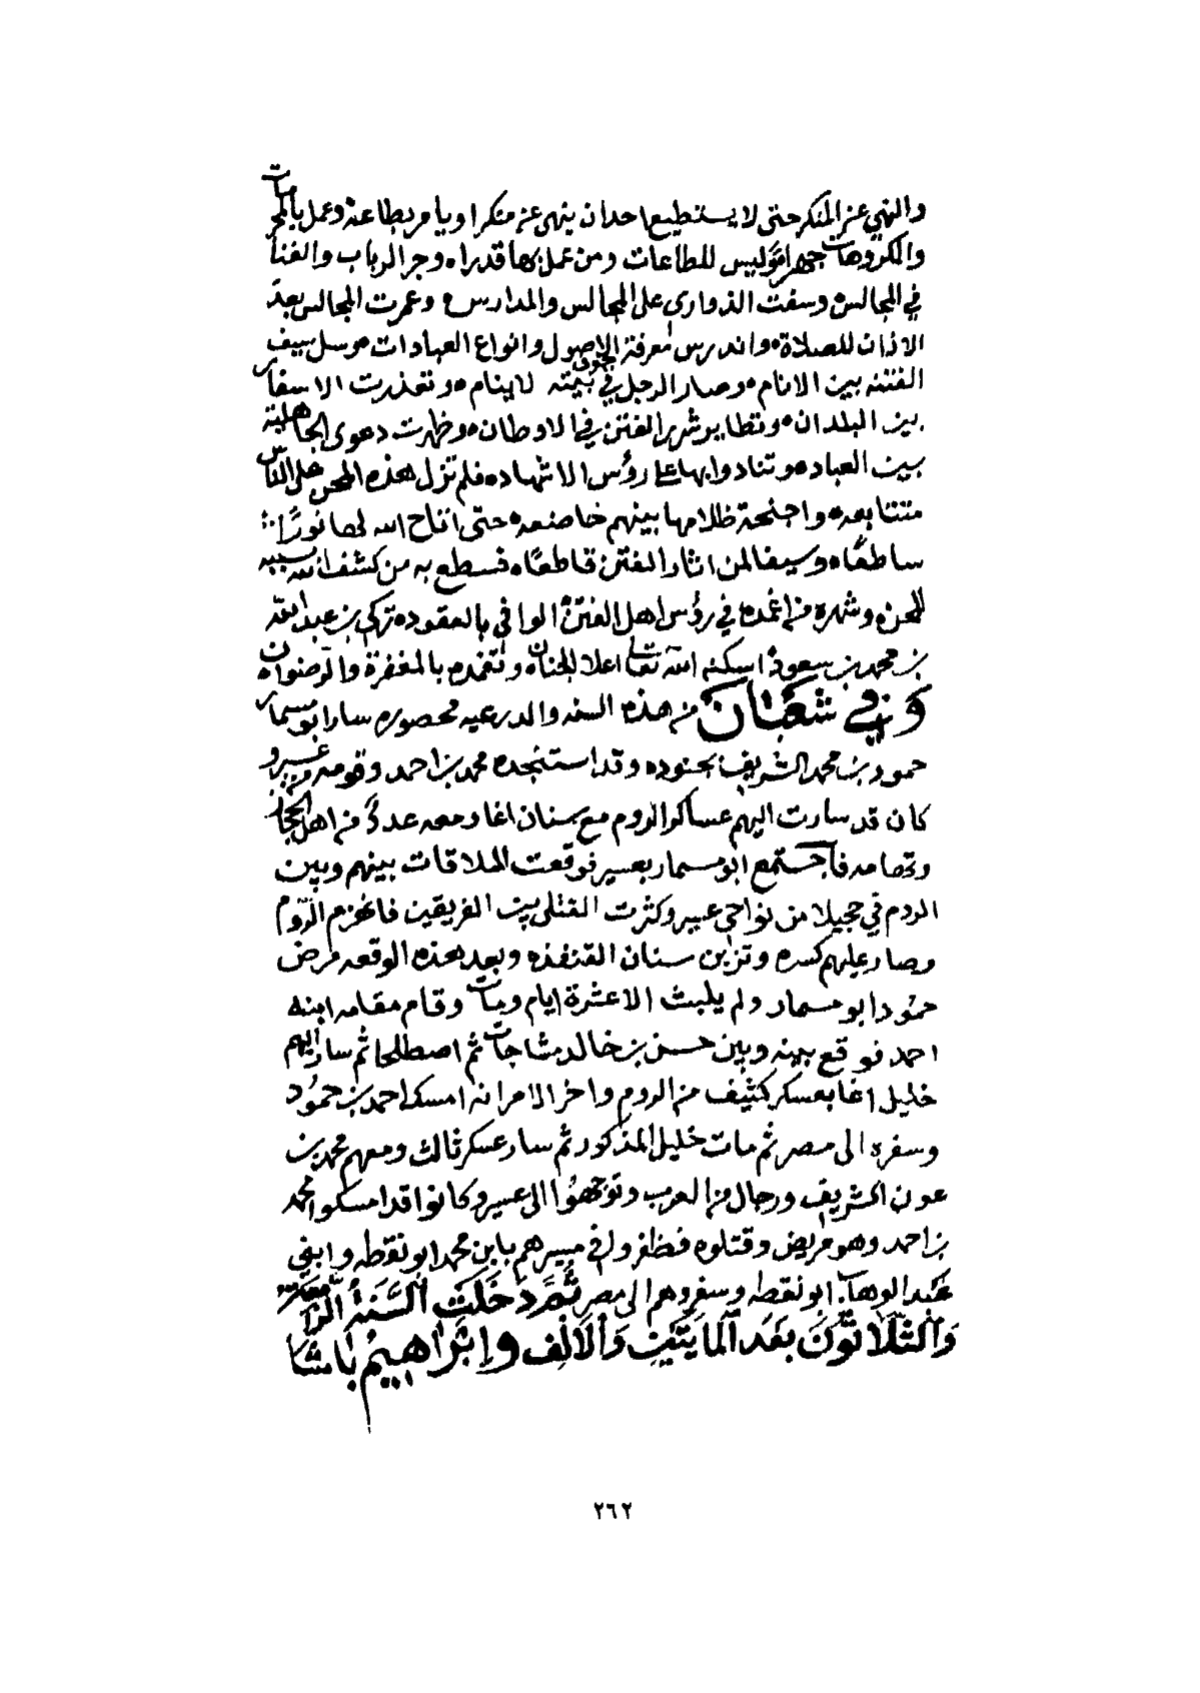 والنهي عن المنكر حتى لا يستطيع احد ان ينهى عن منكر او يامر بطاعة وعمل بالمحرمات
والمكروهات جهرا وليس للطاعات ومن عمل بها قدرا ه وجر الرباب والغنا
في المجالس ه وسفت الذواري على المجالس والمدارس ه وعمرت المجالس بعد
الاذان للصلاة ه واندرس معرفة الاصول وانواع العبادات ه وسل سيف
الفتنه بين الانام ه وصار الرجل في جوف بيته لا ينام ه وتعذرت الاسفار
بين البلدان ه وتطاير شرر الفتن في الاوطان ه وظهرت دعوى الجاهلية
بين العباد ه وتنادوا بها على رؤس الاشهاد ه فلم تزل هذه المحن على الناس
متتابعه ه واجنحة ظلامها بينهم خاضعه ه حتى اتاح الله لها نورًا
ساطعًا ه وسيفا لمن اثار الفتن قاطعًا ه فسطع به من كشف الله بسببه
المحن ه وشهره من اغمده في رؤس اهل الفتن ه الوافي بالعقود ه تركي بن عبدالله
بن محمد بن سعود ه اسكنه الله تعالى اعلا الجنان ه وتغمده بالمغفرة والرضوان ه
وفي شعبان من هذه السنه والدرعيه محصوره سار ابو مسمار
حمود بن محمد الشريف بجنوده وقد استنجده محمد بن احمد وقومه من عسير و
كان قد سارت اليهم عساكر الروم مع سنان اغا ومعه عددٌ من اهل الحجاز
وتهامه فاجتمع ابو مسمار بعسير فوقعت الملاقات بينهم وبين
الروم في حجيلا من نواحي عسير وكثرت القتلى بين الفريقين فانهزم الرّوم
وصار عليهم كسره ونزلبن سنان القنفذه وبعد هذه الوقعه مرض
حمود ابو مسمار ولم يلبث الا عشرة ايام ومات وقام مقامه ابنه
احمد فوقع بينه وبين حسن بن خالد مشاجات ثم اصطلحا ثم سار اليهم
خليل اغا بعسكر كثيف من الروم واخر الامر انه امسك احمد بن حمود
وسفره الى مصر ثم مات خليل المذكور ثم سار عسكر ثالث ومعهم محمد بن
عون الشريف ورجال من العرب وتوجهوا الى عسير وكانوا قد امسكوا محمد
بن احمد وهو مريض وقتلوه فظفروا في مسيرهم بابن محمد ابو نقطه وابني
عبدالوهاب ابو نقطه وسفروهم الى مصر ثُمَّ دَخَلَتْ السَّنَةُ الرَّابِعَة
وَالثَّلَاثُونَ بَعْدَ الْمَايَتَيْنِ وَالْأَلْفِ وإبْرَاهِيمُ بَاشَا
٢٦٢